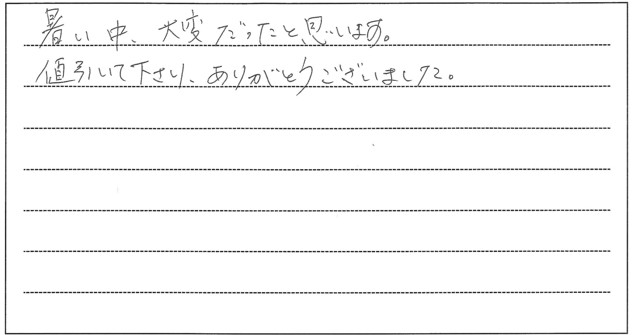 暑い中、大変だったと思います。
値引いて下さり、ありがとうございました。